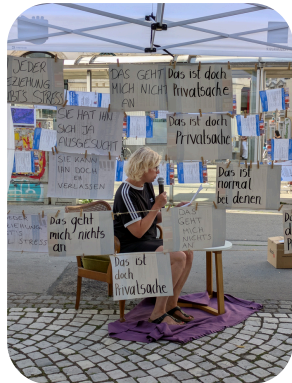 JEDER
BEZIEHUNG
BIS STRESS
DAS GEHT
MICH NICHTS
AN
Das ist doch
Privatsache
SIE HAT IHN
SICH JA
AUSGESUCHT
Das ist doch
Privatsache
SIE KANN
IHN DOCH
VERLASSEN
Das ist
normal
bei denen
Das geht
mich nichts
an
DAS GEHT
MICH NICHTS
AN
Das ist
doch
Privatsache